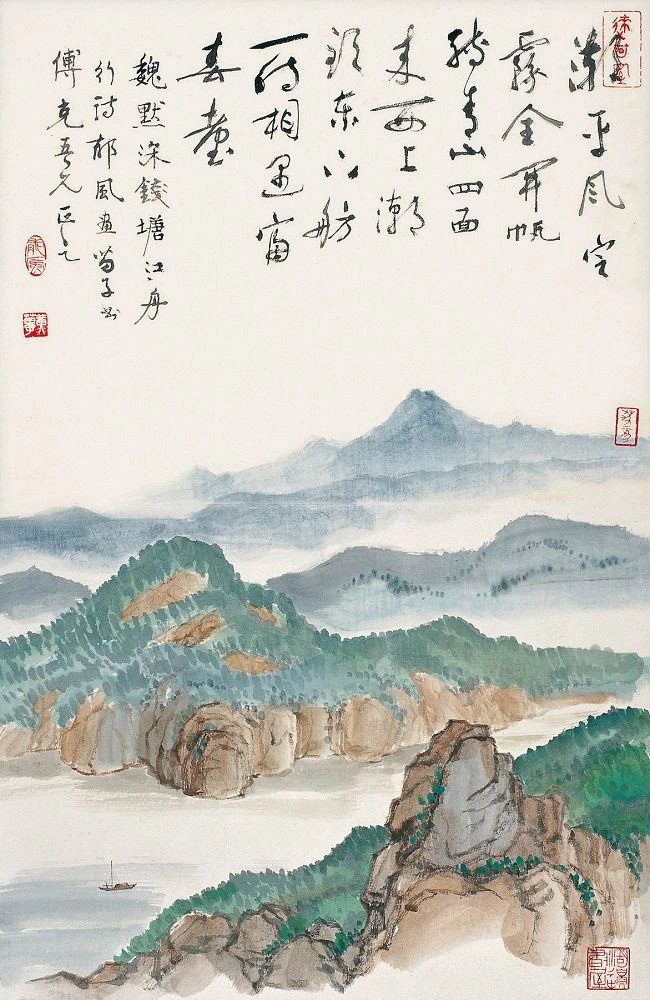 潮平風定
霧全開帆
轉青山四面
來西上潮
頭東下舫
一時相遇富
春臺
魏默深錢塘江舟
行詩郁風畫苗子書
傅克吾兄正之